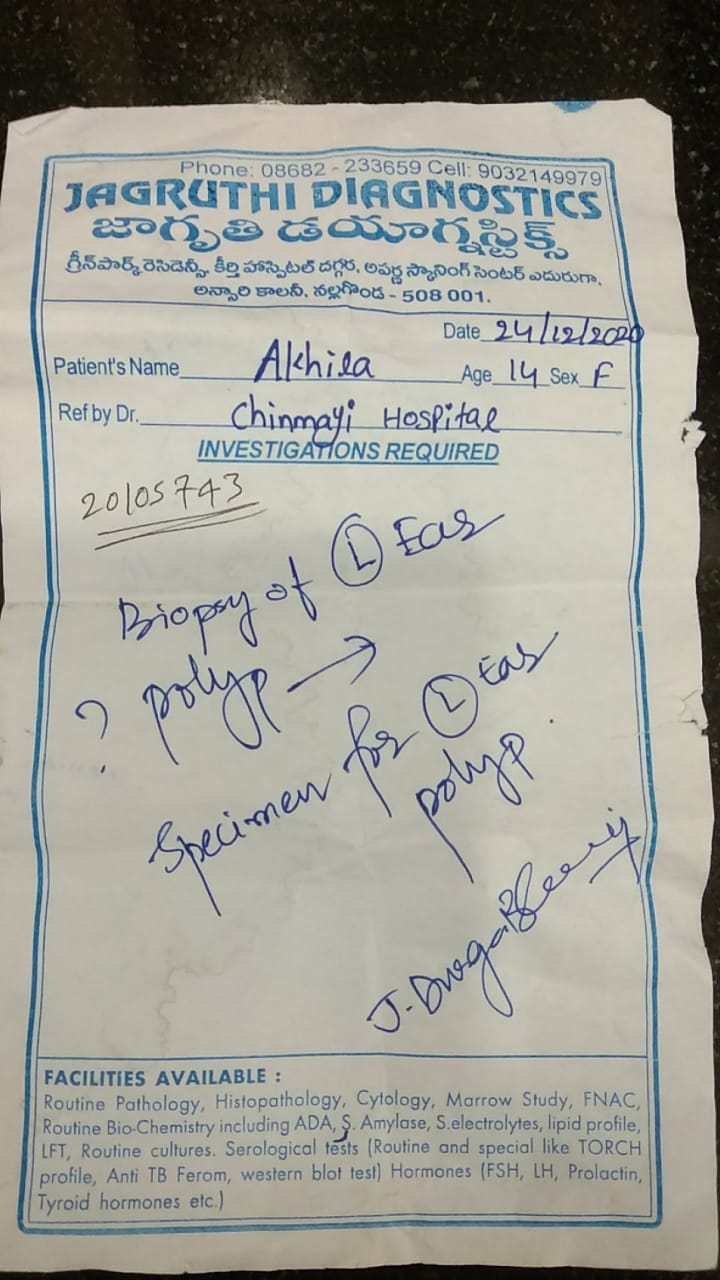 Phone: 08682 - 233659 Cell: 9032149979
JAGRUTHI DIAGNOSTICS
జాగృతి డయాగ్నస్టిక్స్
గ్రీన్‌పార్క్ రెసిడెన్సీ, కీర్తి హాస్పిటల్ దగ్గర, అపర్ణ స్కానింగ్ సెంటర్ ఎదురుగా,
అన్సారి కాలనీ, నల్లగొండ - 508 001.
Date 24/12/2020
Patient's Name Akhila Age 14 Sex F
Ref by Dr. Chinmayi Hospital
INVESTIGATIONS REQUIRED
20105743
Biopsy of L Ear
? polyp →
Specimen for L Ear
polyp
J. Durga
FACILITIES AVAILABLE :
Routine Pathology, Histopathology, Cytology, Marrow Study, FNAC,
Routine Bio-Chemistry including ADA, S. Amylase, S.electrolytes, lipid profile,
LFT, Routine cultures. Serological tests (Routine and special like TORCH
profile, Anti TB Ferom, western blot test) Hormones (FSH, LH, Prolactin,
Tyroid hormones etc.)